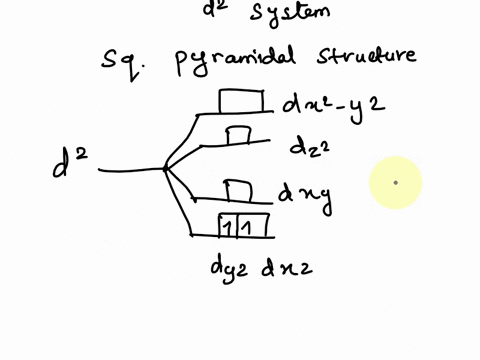 d² system
sq. pyramidal structure
dx²-y2
dz²
d²
dxy
11
dyz dxz